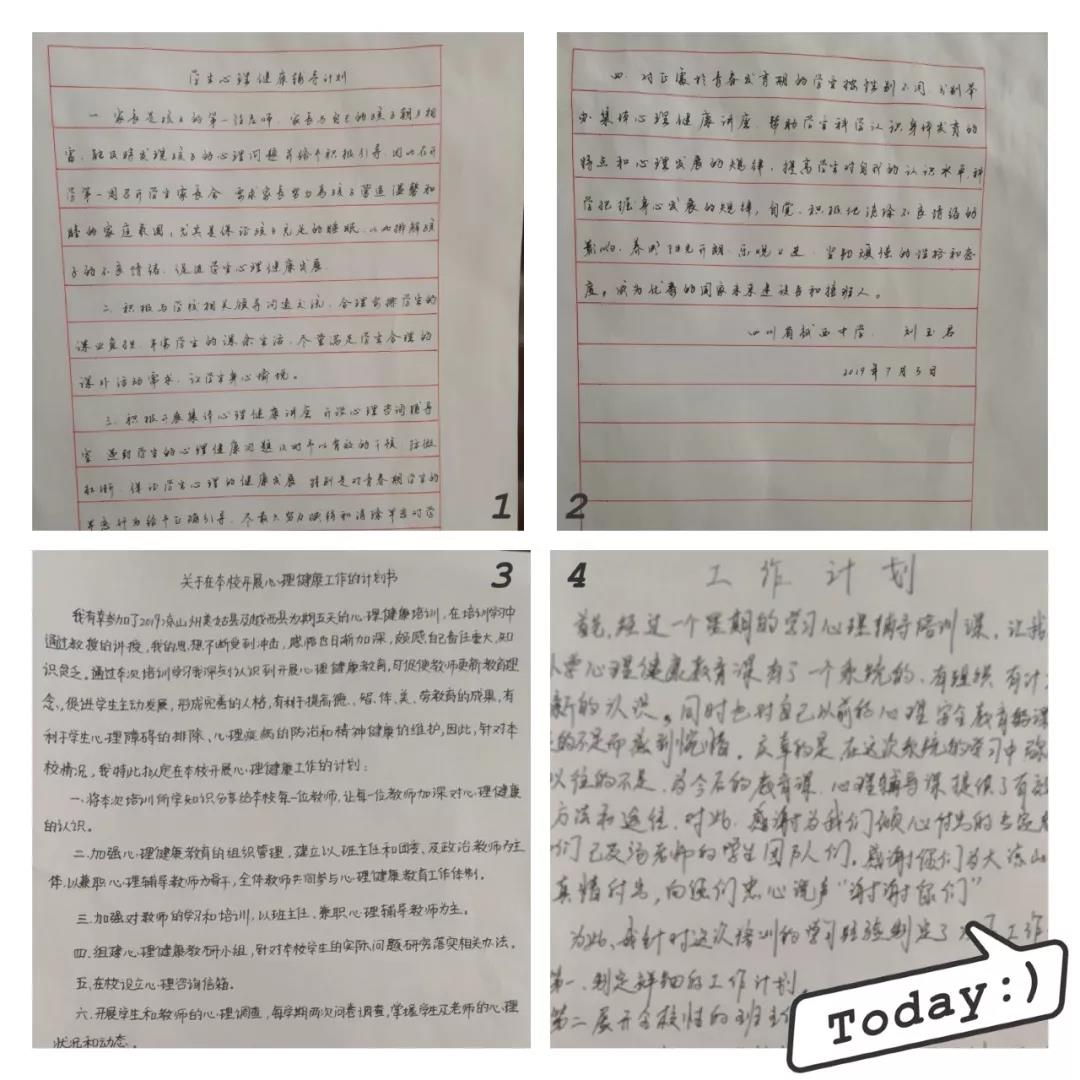 学生心理健康辅导计划
一、家长是孩子的第一任老师,家长与自己的孩子朝夕相
处,能及时发现孩子的心理问题并给予积极引导,因此在开
学第一周召开学生家长会,要求家长努力为孩子营造温馨和
睦的家庭氛围,尤其是保证孩子充足的睡眠,以此排解孩
子的不良情绪,促进学生心理健康发展。
二、积极与学校相关领导沟通交流,合理安排学生的
课业负担,丰富学生的课余生活,尽量满足学生合理的
课外活动需求,让学生身心愉悦。
三、积极开展集体心理健康讲座,开设心理咨询辅导
室,遇到学生的心理健康问题及时予以有效的干预,防微
杜渐,保证学生心理的健康发展,特别是对青春期学生的
早恋行为给予正确引导,尽最大努力
1
四、对正处于青春发育期的学生按性别不同,分别举
办集体心理健康讲座,帮助学生科学认识身体发育的
特点和心理发展的规律,提高学生对自我的认识水平,科
学把握身心发展的规律,自觉、积极地清除不良情绪的
影响,养成阳光开朗、乐观上进、坚韧顽强的性格和态
度,成为优秀的国家未来建设者和接班人。
四川省越西中学 刘玉君
2019年7月5日
2
关于在本校开展心理健康工作的计划书
3
我有幸参加了2019凉山州美姑县及越西县为期五天的心理健康培训,在培训学习中
通过教授的讲授,我的思想不断受到冲击,感愧也日渐加深,颇感自己责任重大,知
识贫乏。通过本次培训学习我深刻认识到开展心理健康教育,可促使教师更新教育理
念,促进学生主动发展,形成完善的人格,有利于提高德、智、体、美、劳教育的成果,有
利于学生心理障碍的排除、心理疾病的防治和精神健康的维护,因此,针对本
校情况,我特此拟定在本校开展心理健康工作的计划:
一.将本次培训所学知识分享给本校每一位教师,让每一位教师加深对心理健康
的认识。
二.加强心理健康教育的组织管理,建立以班主任和团委、及政治教师为主
体,以兼职心理辅导教师为骨干,全体教师共同参与心理健康教育工作体制。
三.加强对教师的学习和培训,以班主任、兼职心理辅导教师为主。
四.组建心理健康教研小组,针对本校学生的实际问题研究落实相关办法。
五.在校设立心理咨询信箱。
六.开展学生和教师的心理调查,每学期两次问卷调查,掌握学生及老师的心理
状况和动态。
4
工作计划
首先,经过一个星期的学习心理辅导培训课,让我
心理健康教育课有了一个系统的、有组织、有计
新的认识。同时也对自己以前的心理安全教育的课
的不足而感到惋惜。庆幸的是在这次系统的学习中
以往的不足,为今后的教育课、心理辅导课提供了有效
方法和途径,对此,感谢为我们倾心付出的专家
们已及汤老师的学生团队们。感谢你们为大凉山
真情付出,向你们忠心说声“谢谢你们”
为此,我针对这次培训的学习经验制定了 工作
第一、制定详细的工作计划。
第二、展开全校性的班主任
Today:)